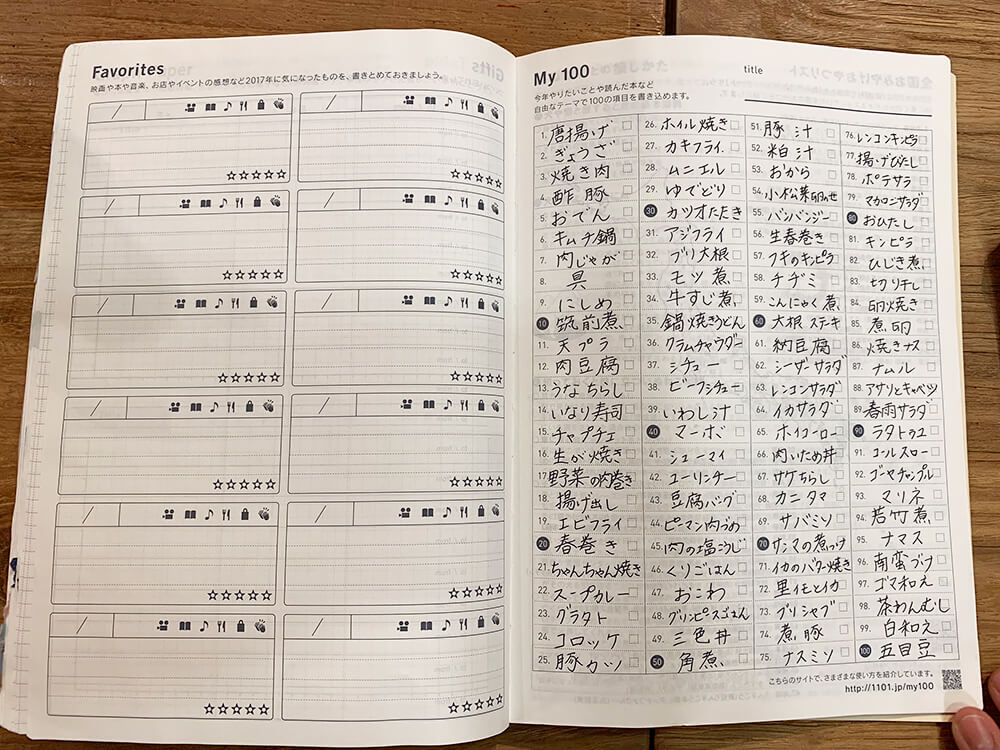 Favorites
映画や本や音楽、お店やイベントの感想など2017年に気になったものを、書きとめておきましょう。
My 100
title
今年やりたいことや読んだ本など
自由なテーマで100の項目を書き込めます。
1. 唐揚げ
2. ぎょうざ
3. 焼き肉
4. 酢豚
5. おでん
6. キムチ鍋
7. 肉じゃが
8.
9. にしめ
10 筑前煮
11. 天プラ
12. 肉豆腐
13. うなちらし
14. いなり寿司
15. チャプチェ
16. 生が焼き
17. 野菜の肉巻き
18. 揚げ出し
19. エビフライ
20 春巻き
21. ちゃんちゃん焼き
22. スープカレー
23. グラタト
24. コロッケ
25. 豚カツ
26. ホイル焼き
27. カキフライ
28. ムニエル
29. ゆでどり
30 カツオたたき
31. アジフライ
32. ブリ大根
33. モツ煮
34. 牛すじ煮
35. 鍋焼きうどん
36. クラムチャウダー
37. シチュー
38. ビークシチュー
39. いわし汁
40 マーボ
41. シューマイ
42. ユーリンチー
43. 豆腐バーグ
44. ピーマン肉づめ
45. 肉の塩こうじ
46. くりごはん
47. おこわ
48. グリンピースごはん
49. 三色丼
50 角煮
51. 豚汁
52. 粕汁
53. おから
54. 小松菜卵のせ
55. バンバンジー
56. 生春巻き
57. フキのキンピラ
58. チヂミ
59. こんにゃく煮
60 大根ステキ
61. 納豆腐
62. シーザーサラダ
63. レンコンサラダ
64. イカサラダ
65. ホイコーロー
66. 肉いため丼
67. サケちらし
68. カニタマ
69. サバミソ
70 サンマの煮つけ
71. イカのバター焼き
72. 里イモとイカ
73. ブリシャブ
74. 煮豚
75. ナスミソ
76. レンコンキンピラ
77. 揚げびたし
78. ポテサラ
79. マカロニサラダ
80 おひたし
81. キンピラ
82. ひじき煮
83. 切り干し
84. 卵焼き
85. 煮卵
86. 焼きナス
87. ナムル
88. アサリとキャベツ
89. 春雨サラダ
90 ラタトゥユ
91. コールスロー
92. ゴーヤチャンプル
93. マリネ
94. 若竹煮
95. ナマス
96. 南蛮づけ
97. ゴマ和え
98. 茶わんむし
99. 白和え
100 五目豆
こちらのサイトで、さまざまな使い方を紹介しています。
http://1101.jp/my100